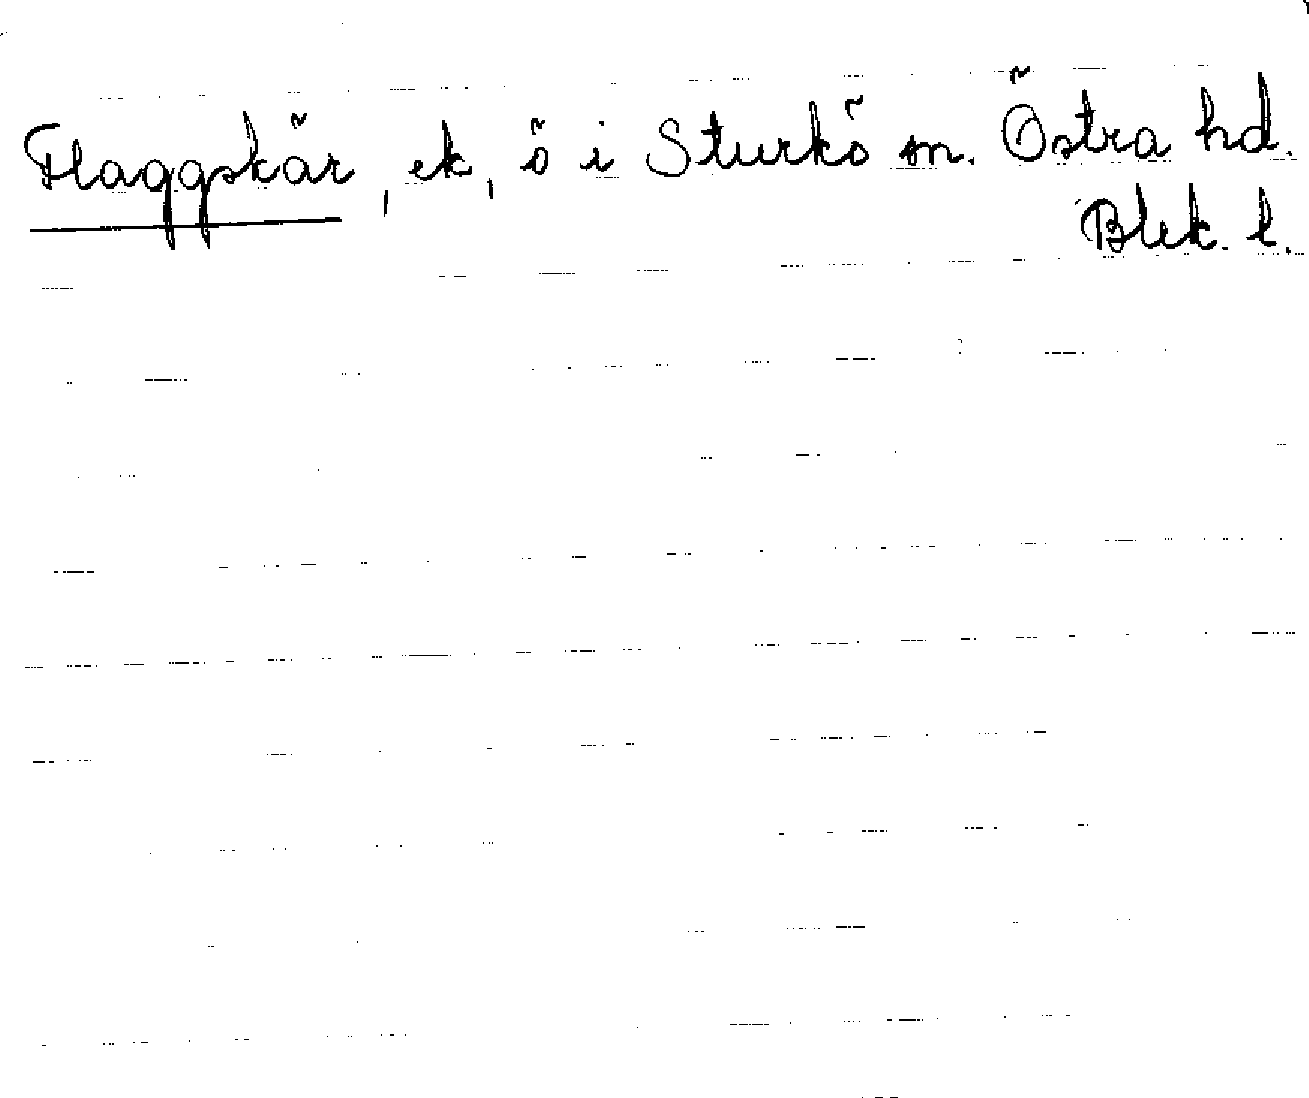 Flaggskär, ek, ö i Sturkö sn. Östra hd.
Blek. l.